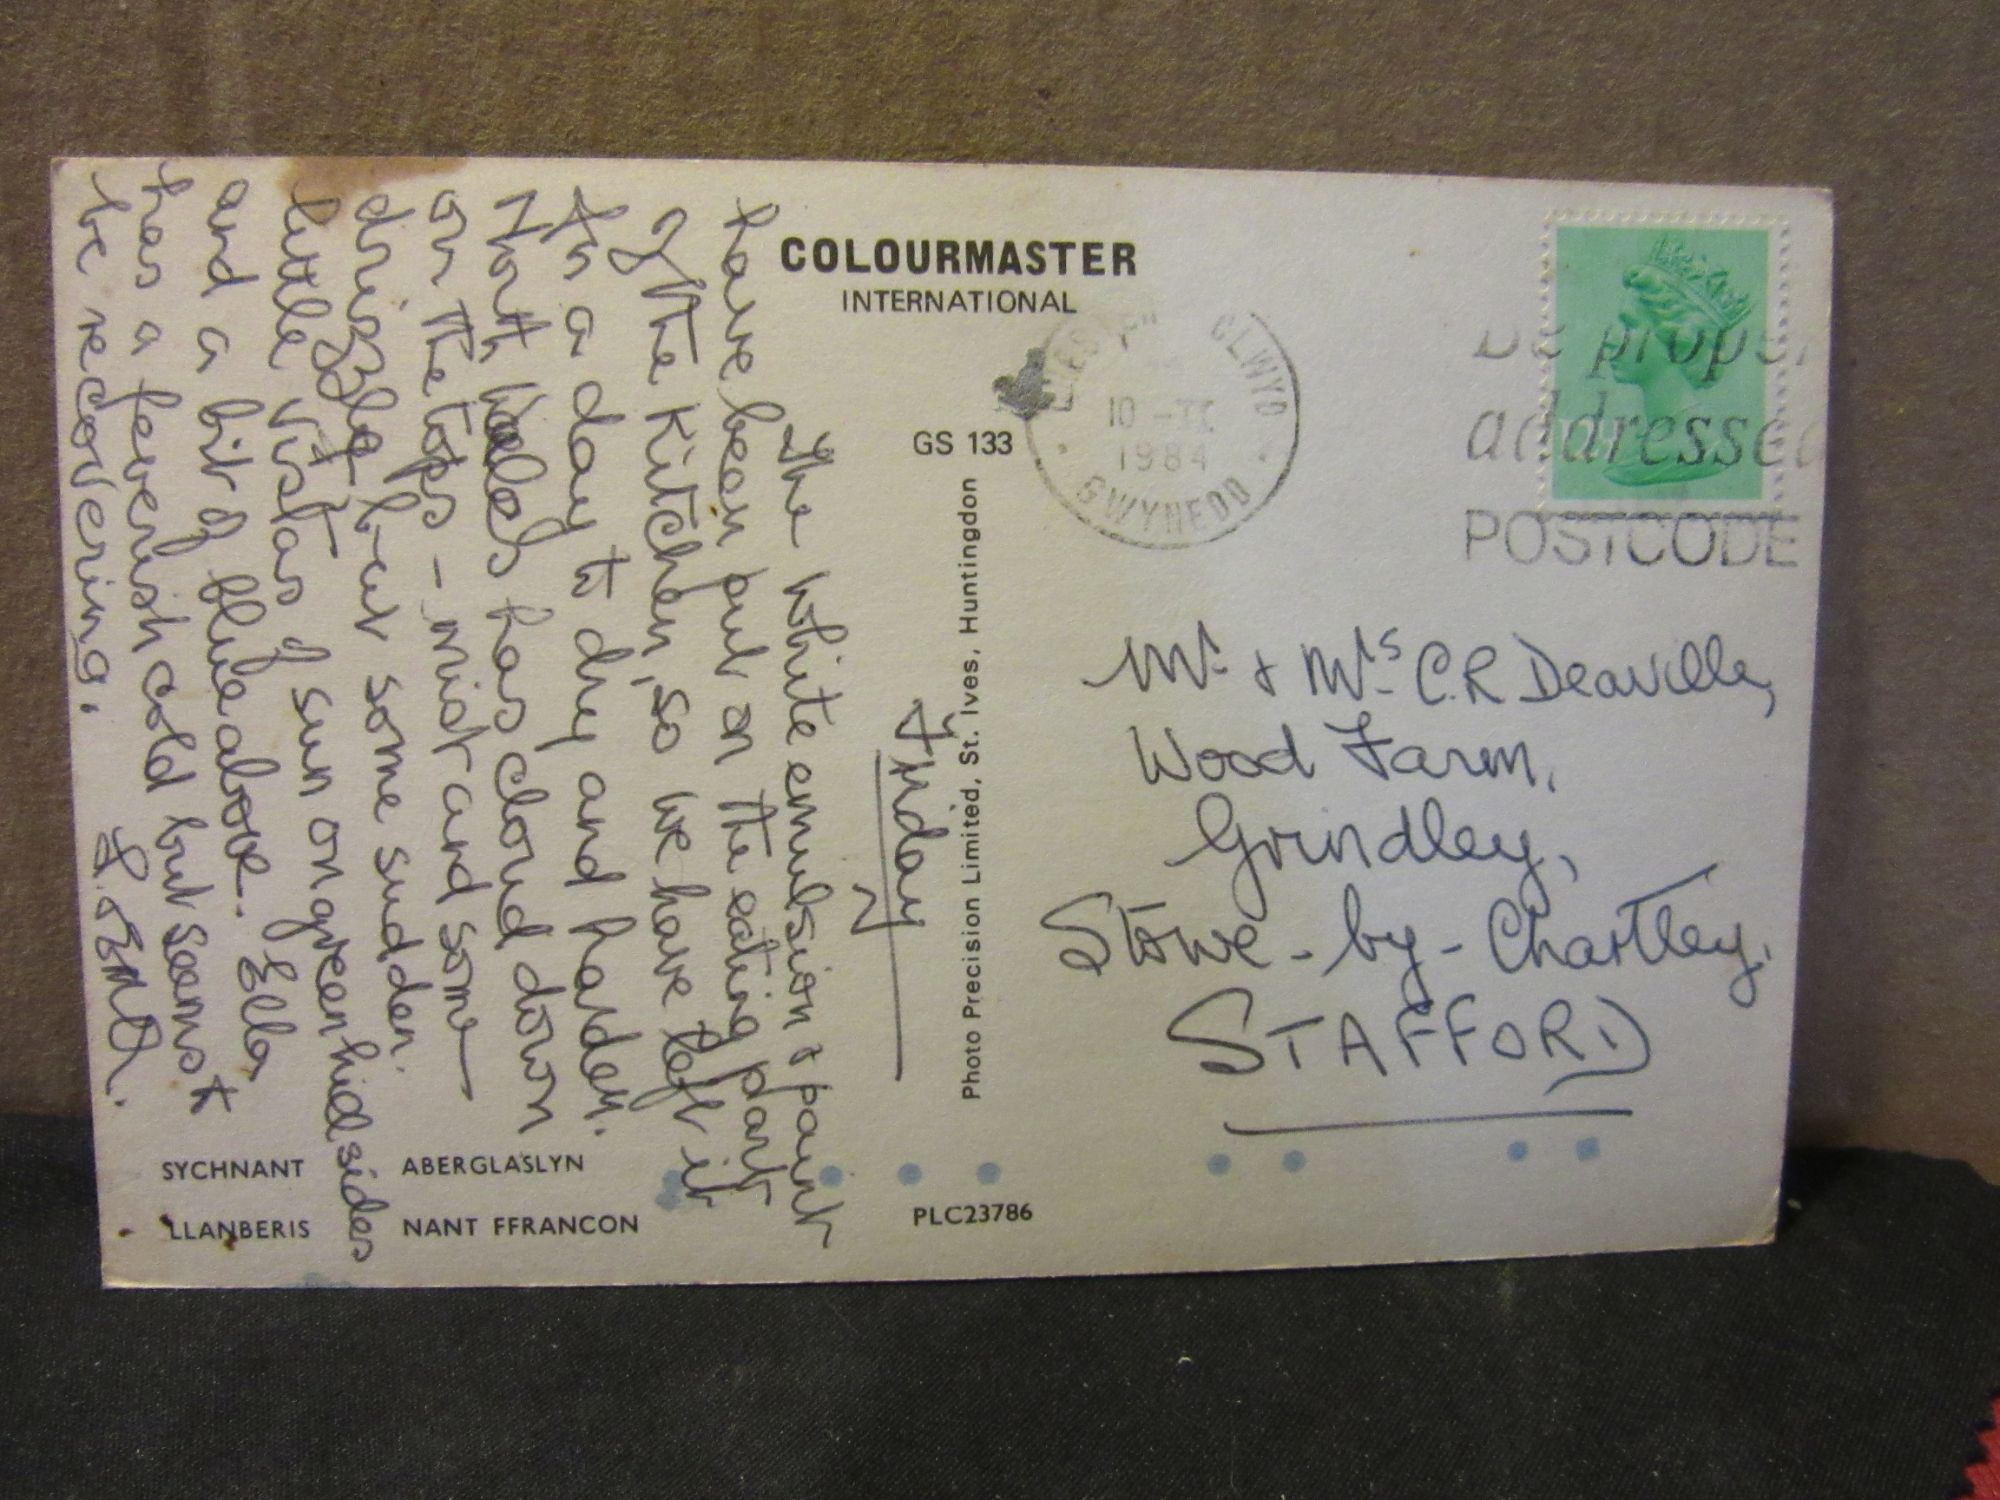 COLOURMASTER
INTERNATIONAL
GS 133
Photo Precision Limited, St. Ives, Huntingdon
CLWYD
10 -IX
1984
GWYNEDD
addressed
POSTCODE
Friday
The White emulsion & paint
have been put on the eating part
of the Kitchen, so we have left it
for a day to dry and harden.
North Wales has cloud down
on the tops - mist and some
drizzle but some sudden
little vistas of sun on green hillsides
and a bit of blue above. Ella
has a feverish cold but seems to
be recovering.
Mr. & Mrs. C.R Deaville,
Wood Farm,
Grindley,
Stowe-by-Chartley,
STAFFORD
SYCHNANT ABERGLASLYN
LLANBERIS NANT FFRANCON
PLC23786